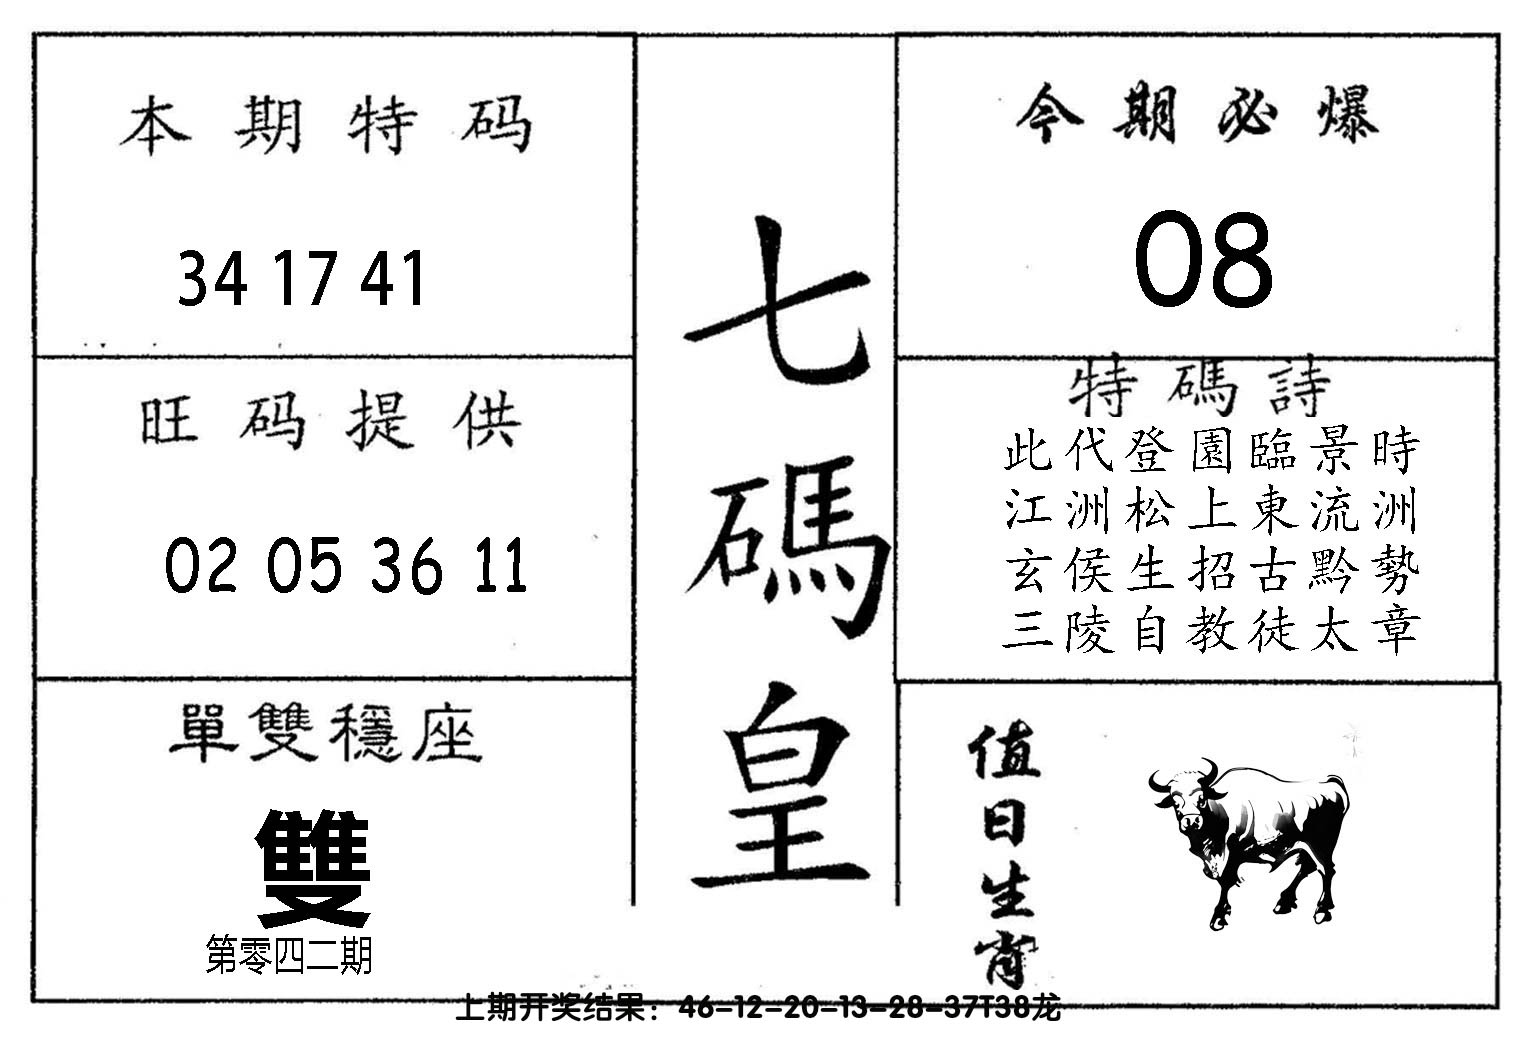 本期特码
34 17 41
旺码提供
02 05 36 11
單雙穩座
雙
第零四二期
七碼皇
今期必爆
08
特碼詩
此代登園臨景時
江洲松上東流洲
玄侯生招古黔勢
三陵自教徒太章
值日生肖
上期开奖结果：46-12-20-13-28-37T38龙